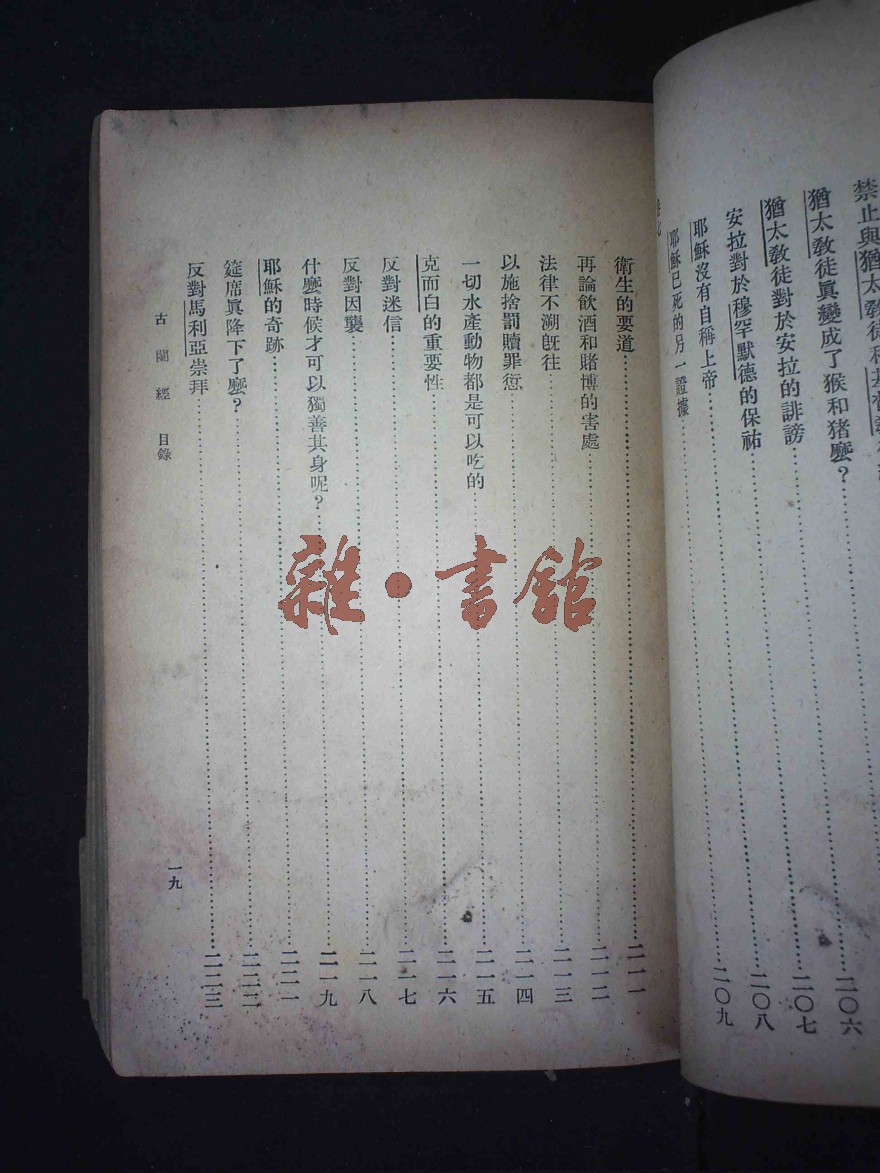 禁止與猶太教徒和基督教
猶太教徒眞變成了猴和猪麽?……二〇六
猶太教徒對於安拉的誹謗……二〇七
安拉對於穆罕默德的保祐……二〇八
耶穌沒有自稱上帝……二〇九
耶穌已死的另一證據
卷七
衛生的要道……二一一
再論飲酒和賭博的害處……二一二
法律不溯旣往……二一三
以施捨罰贖罪愆……二一四
一切水產動物都是可以吃的……二一五
克而白的重要性……二一六
反對迷信……二一七
反對因襲……二一八
什麽時候才可以獨善其身呢?……二一九
耶穌的奇跡……二二一
筵席眞降下了麽?……二二二
反對馬利亞崇拜……二二三
古蘭經 目錄
一九
雜·書館